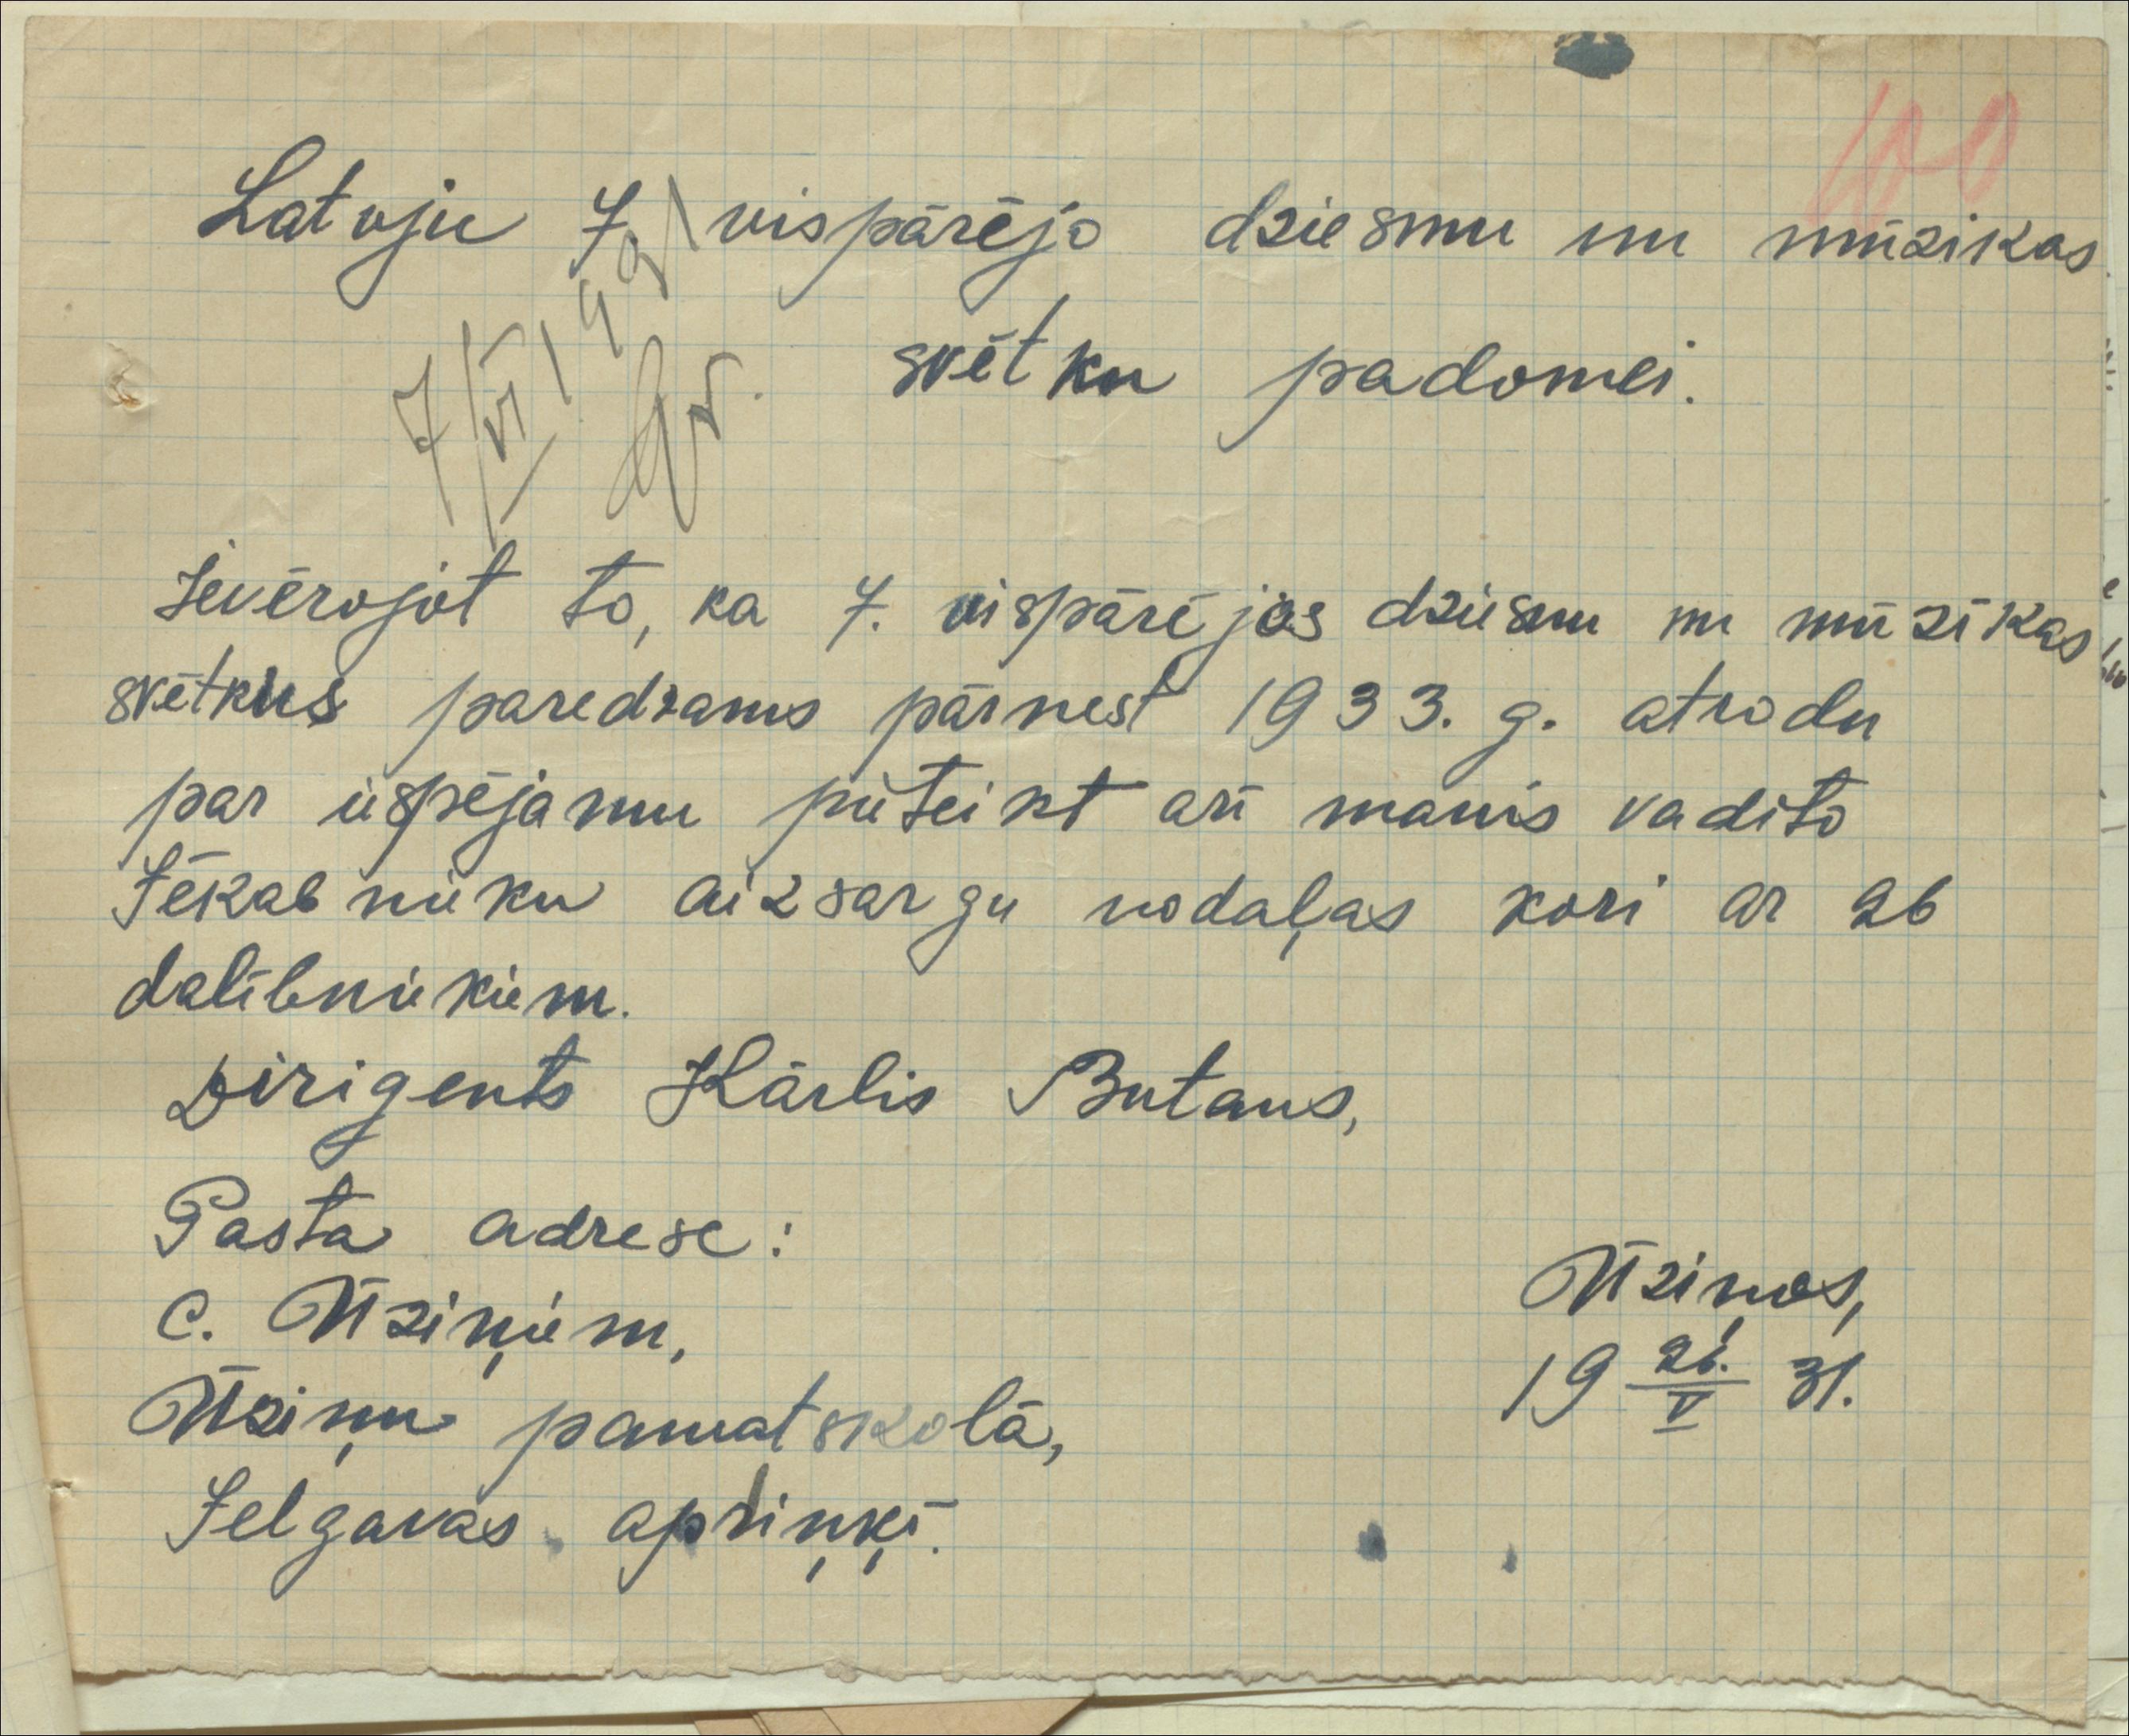 100
Latvju 7. vispārējo dziesmu un mūzikas
svētku padomei.
7/VI 1931
Ievērojot to, ka 7. vispārējos dziesmu un mūzikas
svētkus paredzams pārnest 1933. g. atrodu
par iespējamu pieteikt arī manis vadīto
Jēkabnieku aizsargu nodaļas kori ar 26
dalībniekiem.
Dirigents Kārlis Butans,
Pasta adrese:
c. Ūziņiem,
Ūziņu pamatskolā,
Jelgavas apriņķī.
Ūziņos,
19 26./V 31.